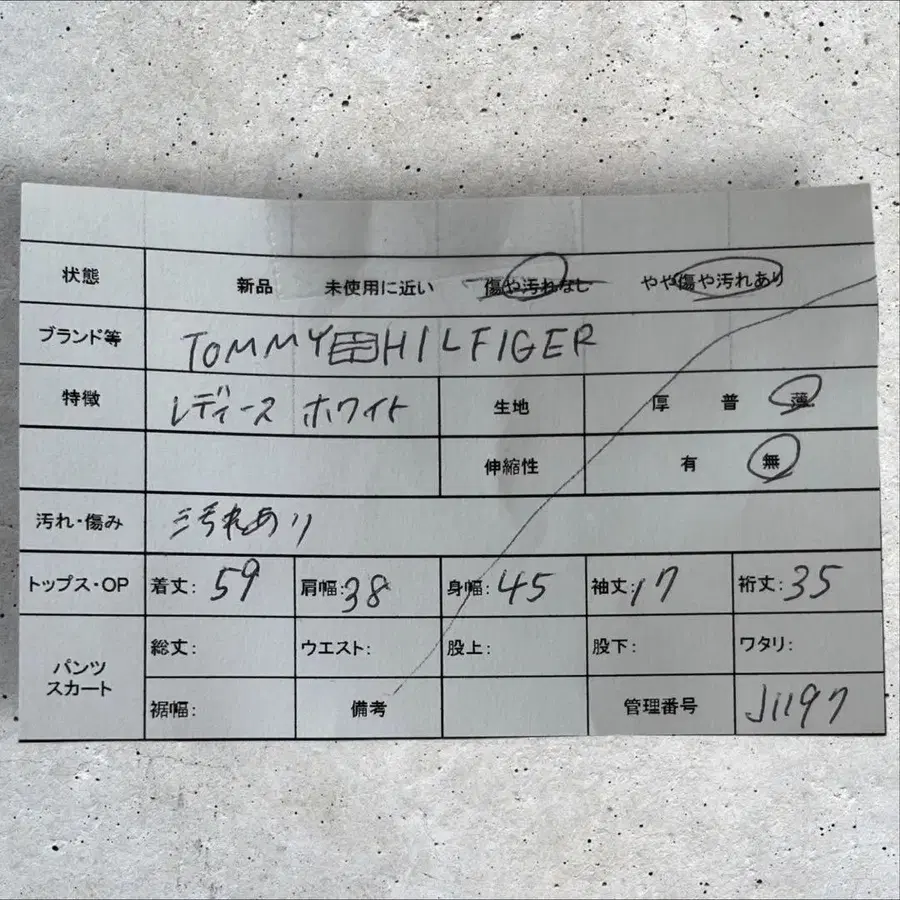 状態 新品 未使用に近い 傷や汚れなし やや傷や汚れあり
ブランド等 TOMMY HILFIGER
特徴 レディース ホワイト 生地 厚 普 薄
伸縮性 有 無
汚れ・傷み 汚れあり
トップス・OP 着丈: 59 肩幅: 38 身幅: 45 袖丈: 17 裄丈: 35
パンツ
スカート
総丈: ウエスト: 股上: 股下: ワタリ:
裾幅: 備考 管理番号 J1197